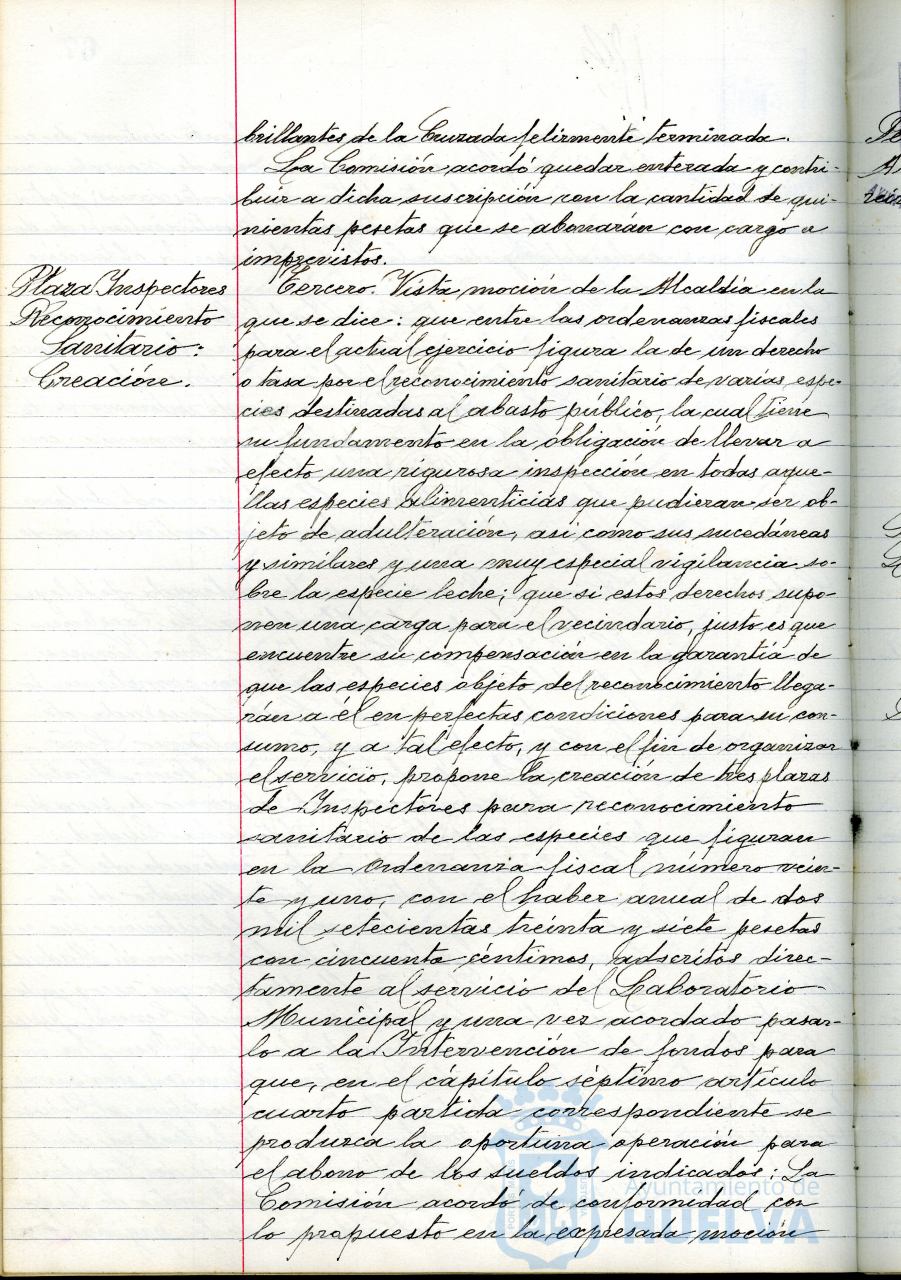 brillantes de la Cruzada felizmente terminada.
La Comisión acordó quedar enterada y contri-
buir a dicha suscripción con la cantidad de qui-
nientas pesetas que se abonarán con cargo a
imprevistos.
Plaza Inspectores
Reconocimiento
Sanitario:
Creación.
Tercero. Vista moción de la Alcaldía en la
que se dice: que entre las ordenanzas fiscales
para el actual ejercicio figura la de un derecho
o tasa por el reconocimiento sanitario de varias espe-
cies destinadas al abasto público, la cual tiene
su fundamento en la obligación de llevar a
efecto una rigurosa inspección en todas aque-
llas especies alimenticias que pudieran ser ob-
jeto de adulteración, asi como sus sucedáneas
y similares y una muy especial vigilancia so-
bre la especie leche; que si estos derechos supo-
nen una carga para el vecindario, justo es que
encuentre su compensación en la garantía de
que las especies objeto del reconocimiento llega-
rán a él en perfectas condiciones para su con-
sumo, y a tal efecto, y con el fin de organizar
el servicio, propone la creación de tres plazas
de Inspectores para reconocimiento
sanitario de las especies que figuran
en la Ordenanza fiscal número vein-
te y uno, con el haber anual de dos
mil setecientas treinta y siete pesetas
con cincuenta céntimos, adscritos direc-
tamente al servicio del Laboratorio
Municipal y una vez acordado pasar-
lo a la Intervención de fondos para
que, en el cápitulo séptimo artículo
cuarto partida correspondiente se
produzca la oportuna operación para
el abono de los sueldos indicados: La
Comisión acordó de conformidad con
lo propuesto en la expresada moción
Ayuntamiento de
HUELVA